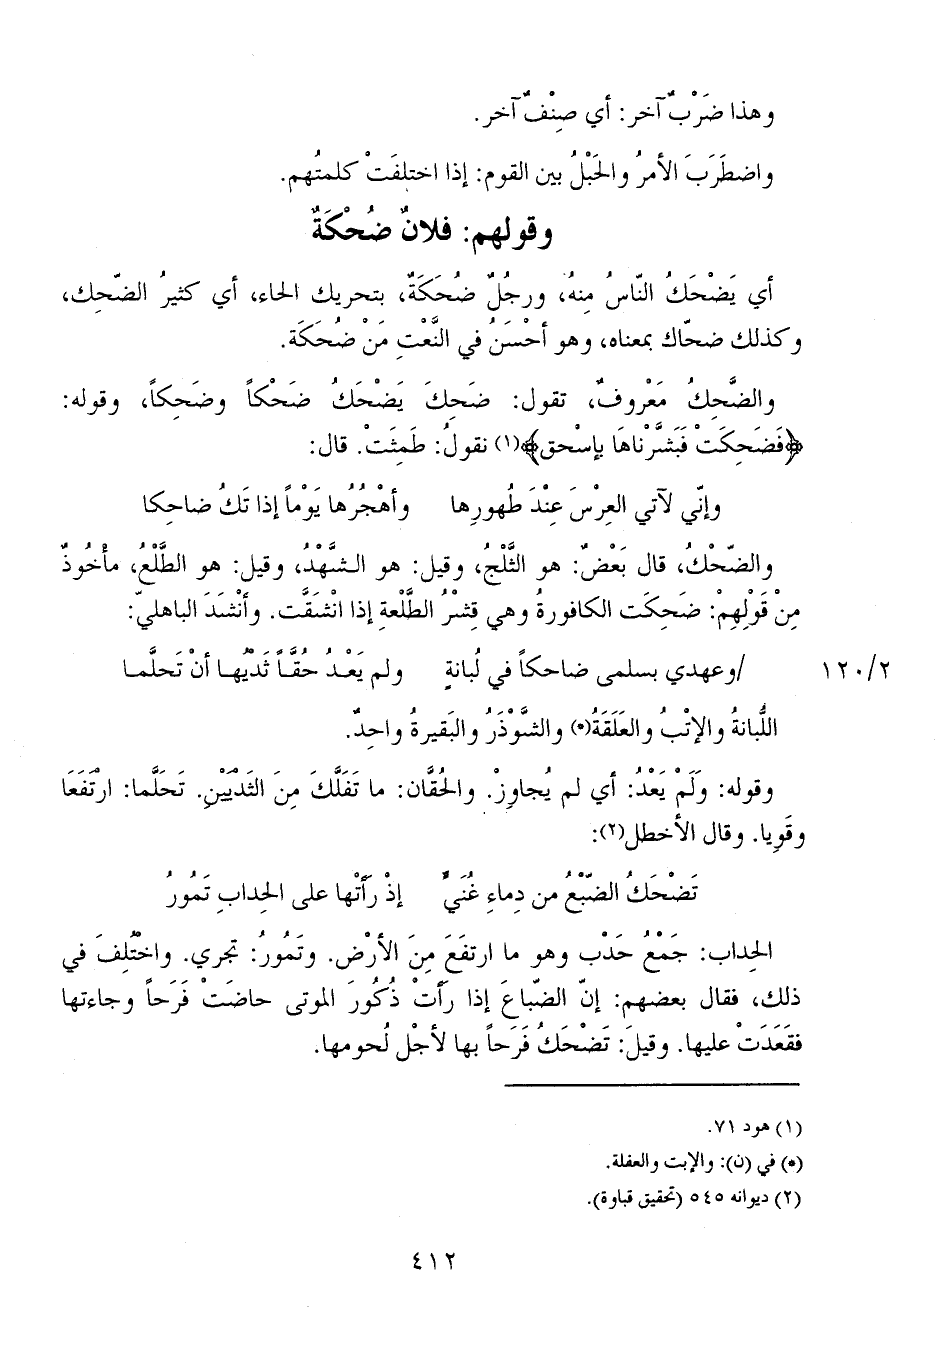 وهذا ضَرْبٌ آخر: أي صِنْفٌ آخر.
واضطَرَبَ الأمرُ والحَبْلُ بين القوم: إذا اختلفَتْ كلمتُهم.
وقولهم: فلانٌ ضُحْكَةٌ
أي يَضْحَكُ النّاسُ مِنهُ، ورجلٌ ضُحَكَةٌ، بتحريك الحاء، أي كثيرُ الضّحِك،
وكذلك ضحّاك بمعناه، وهو أحْسَنُ في النَّعْتِ مَنْ ضُحَكَة.
والضَّحِكُ مَعْروفٌ، تقول: ضَحِكَ يَضْحَكُ ضَحْكاً وضَحِكاً، وقوله:
﴿فَضَحِكَتْ فَبَشَّرْناهَا بإسْحق﴾(١) نقولُ: طَمِثَتْ. قال:
وإنّي لآتي العِرْسَ عِنْدَ طُهورِها وأهْجُرُها يَوْماً إذا تَكُ ضاحِكا
والضّحْكُ، قال بَعْضٌ: هو الثَّلْجُ، وقيل: هو الشَّهْدُ، وقيل: هو الطَّلْعُ، مأخُوذٌ
مِنْ قَوْلِهِمْ: ضَحِكَت الكافورةُ وهي قِشْرُ الطَّلْعةِ إذا انْشَقَّت. وأنْشَدَ الباهليّ:
١٢٠/٢ /وعهدي بسلمى ضاحكاً في لُبانةٍ ولم يَعْدُ حُقَّاً ثَدْيُها أنْ تَحلَّما
اللُّبانةُ والإتْبُ والعَلَقَةُ(*) والشَّوْذَرُ والبَقيرةُ واحِدٌ.
وقوله: وَلَمْ يَعْدُ: أي لم يُجاوِزْ. والحُقَّان: ما تَفَلَّكَ مِنَ الثَدْيَيْنِ. تَحَلَّما: ارْتَفَعَا
وقَوِيا. وقال الأخطل(٢):
تَضْحَكُ الضّبْعُ من دِماءِ غُنَيٍّ إذْ رَأَتْها على الحِدابِ تَمُورُ
الحِداب: جَمْعُ حَدْب وهو ما ارتفَعَ مِنَ الأرْض. وتَمُورُ: تجري. واخْتُلفَ في
ذلك، فقال بعضهم: إنّ الضّباعَ إذا رَأَتْ ذُكُورَ الموتى حاضَتْ فَرَحاً وجاءتها
فقَعَدَتْ عليها. وقيلَ: تَضْحَكُ فَرَحاً بها لأجْل لُحومها.
(١) هود ٧١.
(*) في (ن): والإبت والعفلة.
(٢) ديوانه ٥٤٥ (تحقيق قباوة).
٤١٢